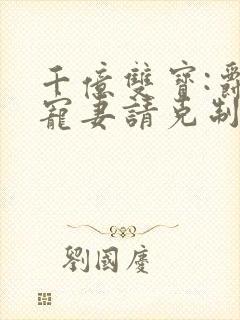 千億雙寶:
寵妻請克制
劉國慶